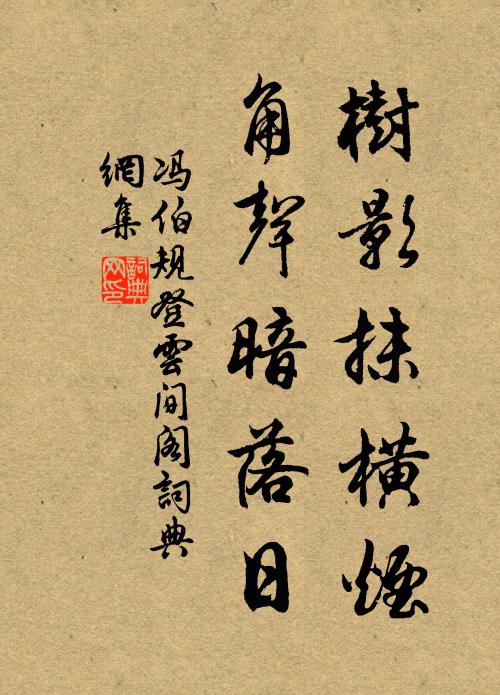 樹影抹橫煙
角聲暗落日
冯伯規登雲间阁詞典
網集
詞典
网印